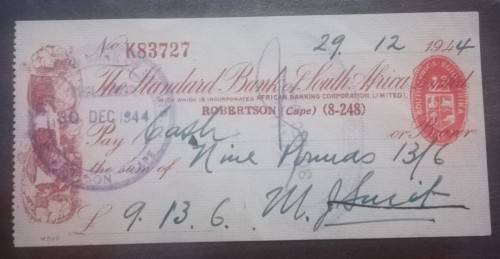 No K83727 29. 12 1944
The Standard Bank of South Africa Limited
(WITH WHICH IS INCORPORATED AFRICAN BANKING CORPORATION, LIMITED)
30 DEC 1944
ROBERTSON (Cape) (8-248)
Pay Cash or Bearer
the sum of Nine Pounds 13/6
£ 9. 13. 6. M. J. Smit